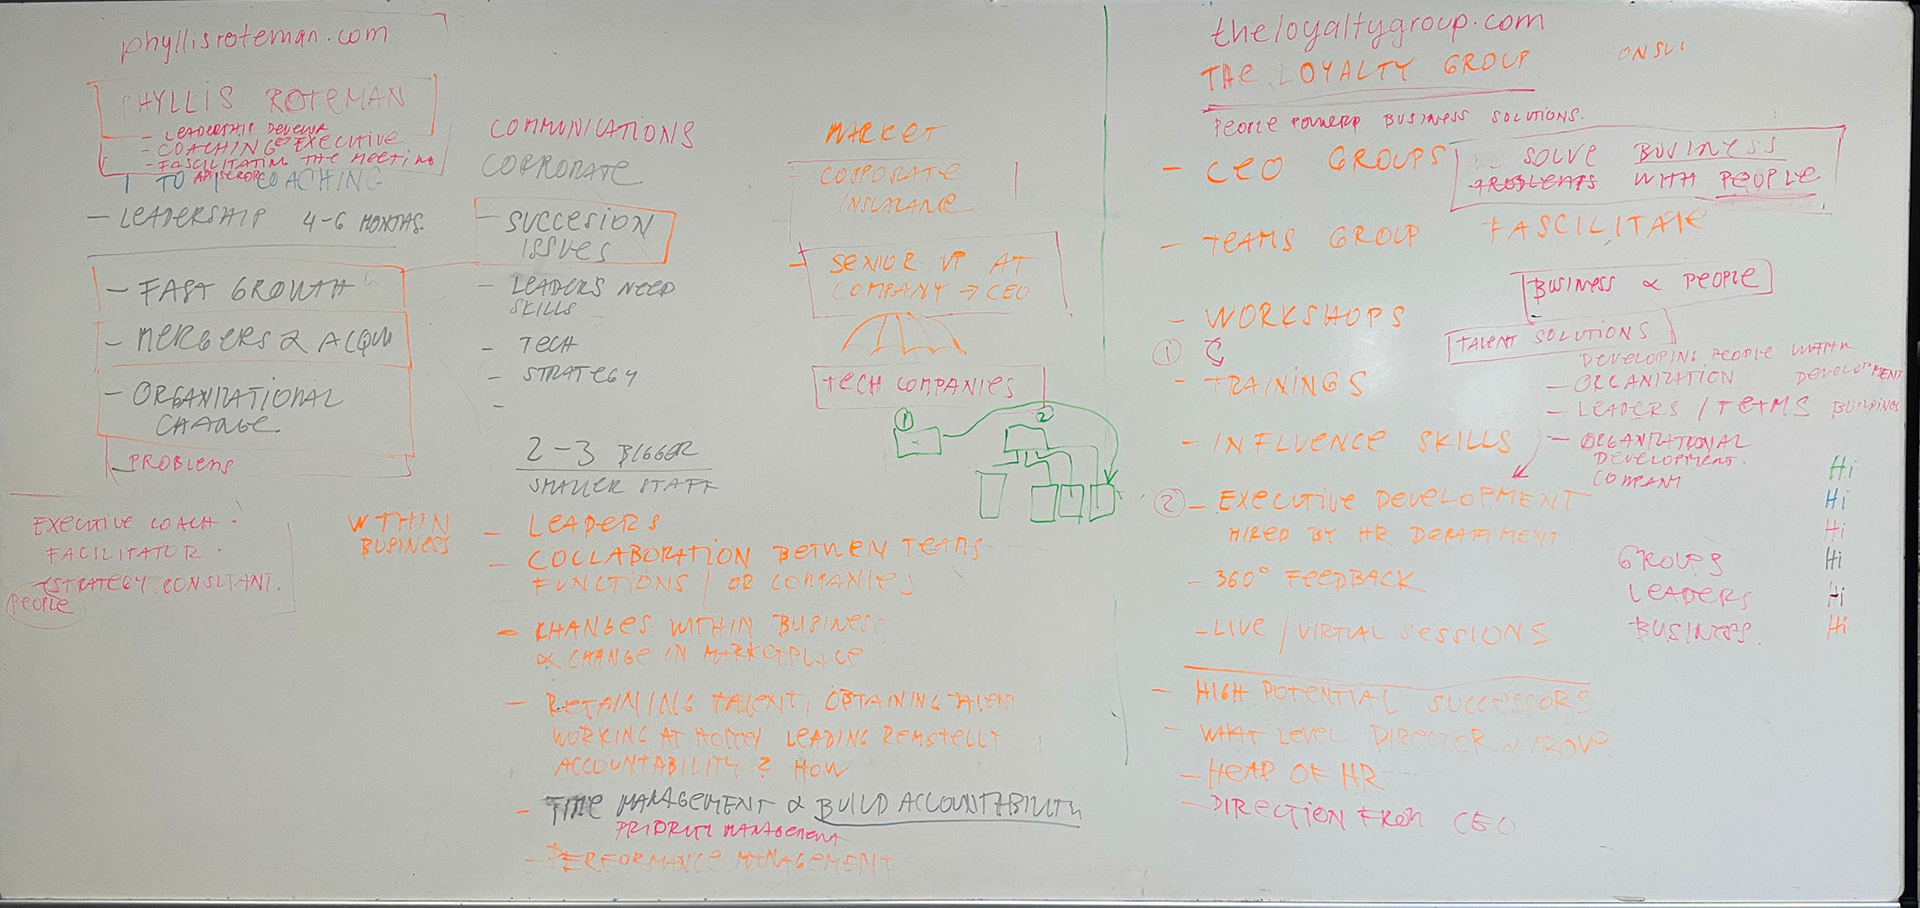 phyllisroteman.com
PHYLLIS ROTEMAN
- LEADERSHIP DEVELOP
- COACHING EXECUTIVE
- FASCILITATING THE MEETING
1 TO 1 COACHING
- LEADERSHIP 4-6 MONTHS
- FAST GROWTH
- MERGERS & ACQUI
- ORGANIZATIONAL
CHANGE
- PROBLEMS
EXECUTIVE COACH.
FACILITATOR.
STRATEGY CONSULTANT.
PEOPLE
COMMUNICATIONS
CORPORATE
- SUCCESION
ISSUES
- LEADERS NEED
SKILLS
- TECH
- STRATEGY
-
2-3 BIGGER
SMALLER STAFF
MARKET
CORPORATE
INSURANCE
- SENIOR VP AT
COMPANY → CEO
TECH COMPANIES
1
2
WITHIN
BUSINESS
- LEADERS
- COLLABORATION BETWEEN TEAMS
FUNCTIONS / OR COMPANIES
- CHANGES WITHIN BUSINESS
& CHANGE IN MARKETPLACE
- RETAINING TALENT, OBTAINING TALENT
WORKING AT HOME/ LEADING REMOTELLY
ACCOUNTABILITY? HOW
- TIME MANAGEMENT & BUILD ACCOUNTABILITY
PRIORITY MANAGEMENT
- PERFORMANCE MANAGEMENT
theloyaltygroup.com
THE LOYALTY GROUP
ONSUL
PEOPLE POWERED BUSINESS SOLUTIONS.
- CEO GROUPS
SOLVE BUSINESS
PROBLEMS WITH PEOPLE
- TEAMS GROUP FASCILITATE
BUSINESS & PEOPLE
- WORKSHOPS
1
TALENT SOLUTIONS
DEVELOPING PEOPLE WITHIN
- TRAININGS
- ORGANIZATION DEVELOPMENT
- LEADERS / TEAMS BUILDINGS
- INFLUENCE SKILLS
- ORGANIZATIONAL
DEVELOPMENT.
COMPANY
2 - EXECUTIVE DEVELOPMENT
HIRED BY HR DEPARTMENT
- 360° FEEDBACK
- LIVE / VIRTUAL SESSIONS
GROUPS
LEADERS
BUSINESS.
Hi
Hi
Hi
Hi
Hi
Hi
- HIGH POTENTIAL SUCCESSORS
- WHAT LEVEL DIRECTER & ABOVE
- HEAD OF HR
- DIRECTION FROM CEO